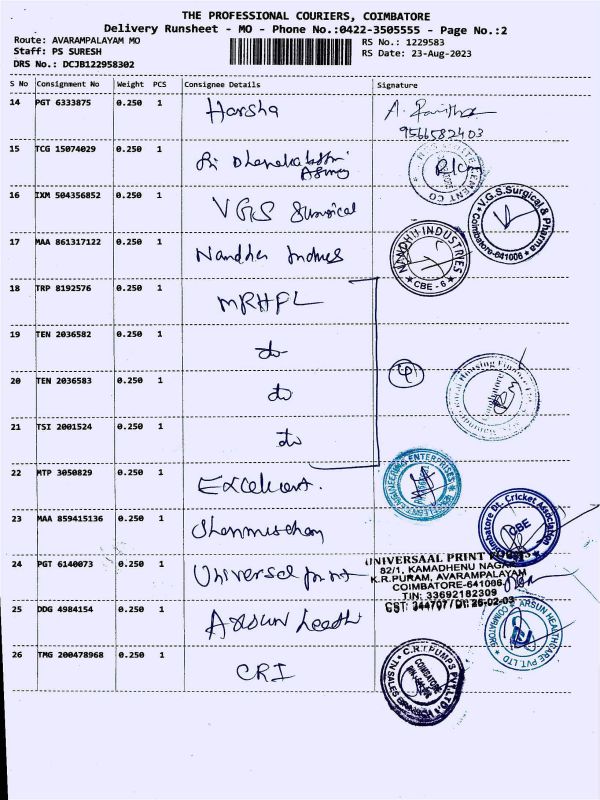 THE PROFESSIONAL COURIERS, COIMBATORE
Delivery Runsheet - MO - Phone No.:0422-3505555 - Page No.:2
Route: AVARAMPALAYAM MO
RS No.: 1229583
Staff: PS SURESH
RS Date: 23-Aug-2023
DRS No.: DCJB122958302
S No Consignment No Weight PCS Consignee Details Signature
14 PGT 6333875 0.250 1 Harsha
9566582403
15 TCG 15074029 0.250 1
16 IXM 504356852 0.250 1 VGS Surgical
V.G.S. Surgical & Pharma
Coimbatore-641006
17 MAA 861317122 0.250 1 Nandhi
NANDHI INDUSTRIES
CBE - 6
18 TRP 8192576 0.250 1 MRHFL
19 TEN 2036582 0.250 1 do
4
20 TEN 2036583 0.250 1 do
21 TSI 2001524 0.250 1 do
22 MTP 3050829 0.250 1 Excellent.
ENGINEERING ENTERPRISES
23 MAA 859415136 0.250 1
Coimbatore Dt. Cricket Association
CBE
24 PGT 6140073 0.250 1 Universal print
UNIVERSAAL PRINT
82/1, KAMADHENU NAGAR
K.R.PURAM, AVARAMPALAYAM
COIMBATORE-641006
TIN: 33692182309
CST: 344707 / Dt: 26-02-03
25 DDG 4984154 0.250 1 Arsun Health
ARSUN HEALTHCARE PVT. LTD
COIMBATORE
26 TMG 200478968 0.250 1 CRI
C.R.I. PUMPS PVT. LTD.
COIMBATORE